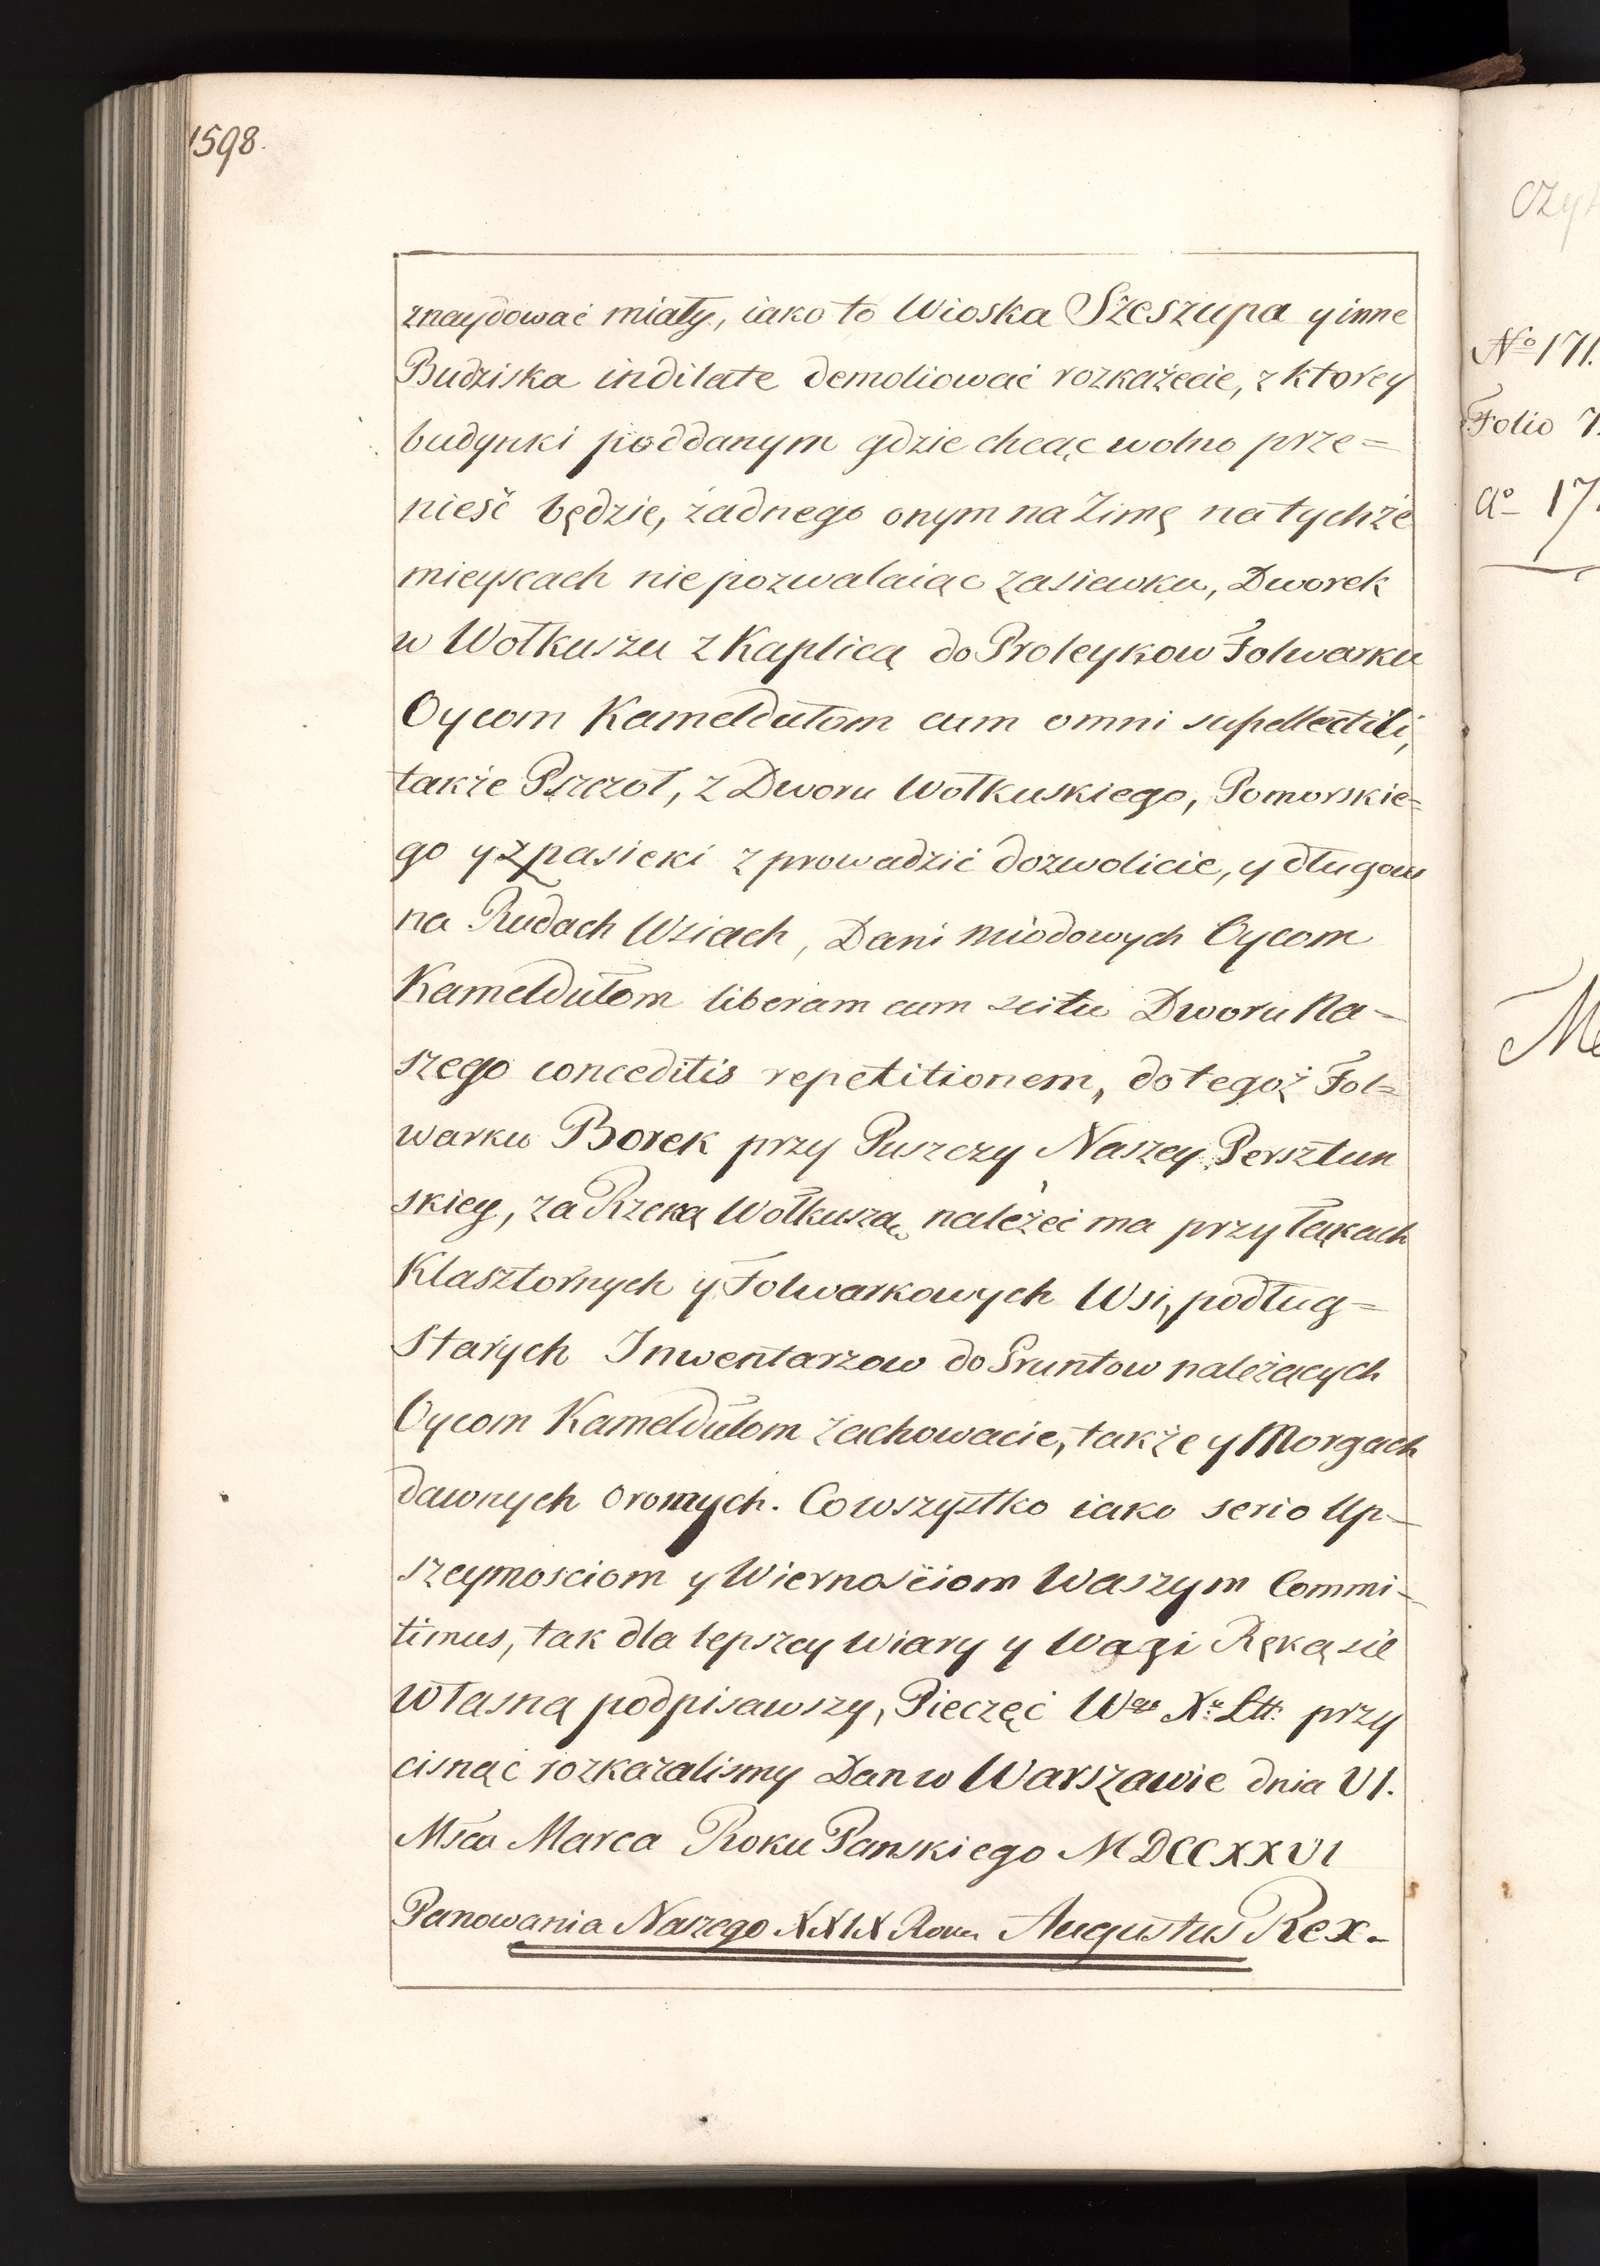 1598.
znaydować miały, iako to Wioska Szeszupa y inne
Budziska indilate demoliować rozkażecie, z ktorey
budynki poddanym gdzie chcąc wolno prze=
nieść będzie, żadnego onym na Zimę na tychże
mieyscach nie pozwalaiąc zasiewku, Dworek
w Wołkuszu z Kaplicą do Proleykow Folwarku
Oycom Kameldułom cum omni supellectili,
także Pszczoł, z Dworu Wołkuskiego, Pomorskie=
go y z pasieki zprowadzić dozwolicie, y długow
na Rudach Wsiach, Dani miodowych Oycom
Kameldułom liberam cum scitu Dworu Na-
szego conceditis repetitionem, do tegoż Fol=
warku Borek przy Puszczy Naszey Persztun
skiey, za Rzeką Wołkuszą, należeć ma przy łąkach
Klasztornych y Folwarkowych Wsi, podług=
Starych Inwentarzow do Gruntow należących
Oycom Kameldułom zachowacie, także y Morgach
dawnych oromych. Co wszystko iako serio Up-
szeymosciom y Wiernościom Waszym Commi-
timus, tak dla lepszey wiary y Wagi Ręką się
Własną podpisawszy, Pieczęć Wgo Xa Litt: przy
cisnąć rozkazalismy Dan w Warszawie dnia VI.
Msca Marca Roku Panskiego MDCCXXVI
Panowania Naszego XXIX Roku Augustus Rex.
No 171.
Folio 7
Ao 17